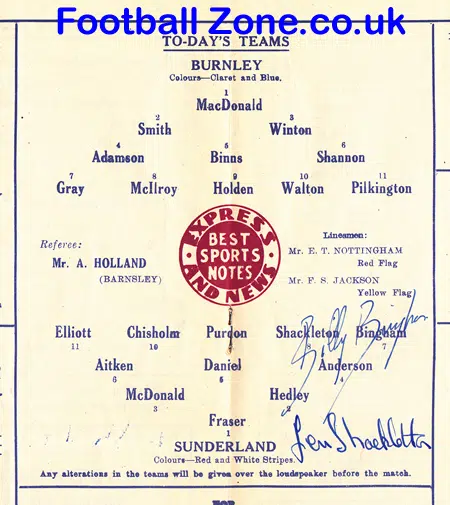 Football Zone.co.uk
TO-DAY'S TEAMS
BURNLEY
Colours—Claret and Blue.
1
MacDonald
2 3
Smith Winton
4 5 6
Adamson Binns Shannon
7 8 9 10 11
Gray McIlroy Holden Walton Pilkington
EXPRESS
BEST
SPORTS
NOTES
AND NEWS
Referee:
Mr. A. HOLLAND
(BARNSLEY)
Linesmen:
Mr. E. T. NOTTINGHAM
Red Flag
Mr. F. S. JACKSON
Yellow Flag
Billy Bingham
Elliott Chisholm Purdon Shackleton Bingham
11 10 9 8 7
Aitken Daniel Anderson
6 5 4
McDonald Hedley
3 2
Fraser
1
Len Shackleton
SUNDERLAND
Colours—Red and White Stripes.
Any alterations in the teams will be given over the loudspeaker before the match.